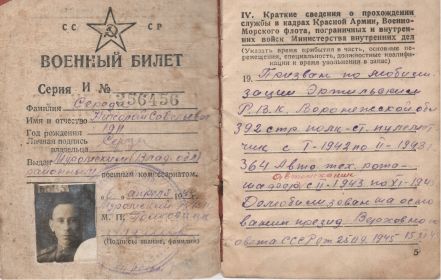 СС СР
ВОЕННЫЙ БИЛЕТ
Серия И № 356456
Фамилия Середа
Имя и отчество Григорий Савельевич
Год рождения 1911
Личная подпись
владельца Середа
Выдан
районным военным комиссариатом.
апреля
М. П.
(Подпись, звание, фамилия)
IV. Краткие сведения о прохождении
службы в кадрах Красной Армии, Военно-
Морского флота, пограничных и внутрен-
них войск Министерства внутренних дел
(Указать время прибытия в часть, основные пе-
ремещения, специальность, должностные квалифи-
кации и время увольнения в запас)
19. Призван по мобили-
зации Эртильским
Р.В.К. Воронежской обл
392 стр. полк - ст. пулемет-
чик с I-1942 по II-1943
364 Авто тех. рота-
автомеханик
шофер с II-1943 по XI-19
Демобилизован на осно-
вании презид. Верховно
совета СССР от 25.09.1945
5